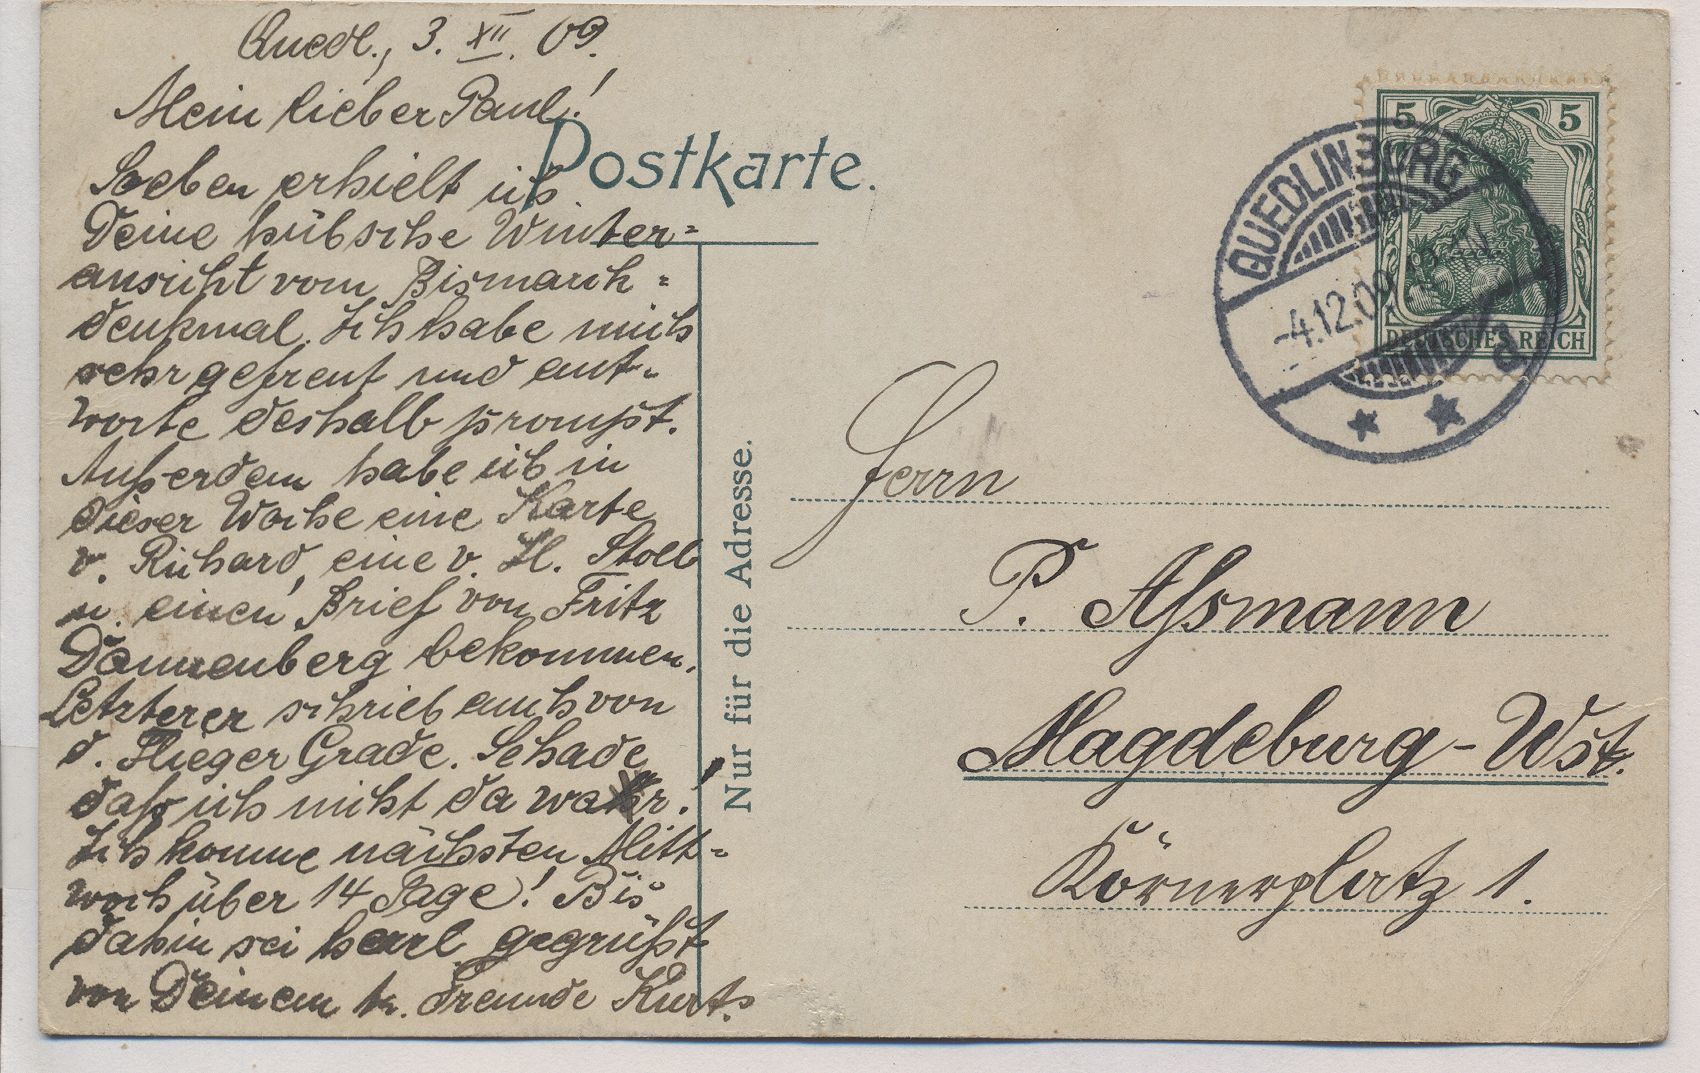 Quedl., 3. XII. 09.
Mein lieber Paul!
Soeben erhielt ich
Deine hübsche Winter=
ansicht vom Bismarck=
denkmal. Ich habe mich
sehr gefreut und ant=
worte deshalb prompt.
Außerdem habe ich in
dieser Woche eine Karte
v. Richard, eine v. H. Stoeb
u. einen Brief von Fritz
Dannenberg bekommen.
Letzterer schrieb auch von
d. Flieger Grade. Schade
daß ich nicht da war!
Ich komme nächsten Mitt=
woch über 14 Tage! Bis
dahin sei herzl. gegrüßt
von Deinem tr. Freunde Kurt.
Postkarte.
Nur für die Adresse.
5 5
DEUTSCHES REICH
QUEDLINBURG
-4.12.09
d
Herrn
P. Assmann
Magdeburg-Wst.
Körnerplatz 1.